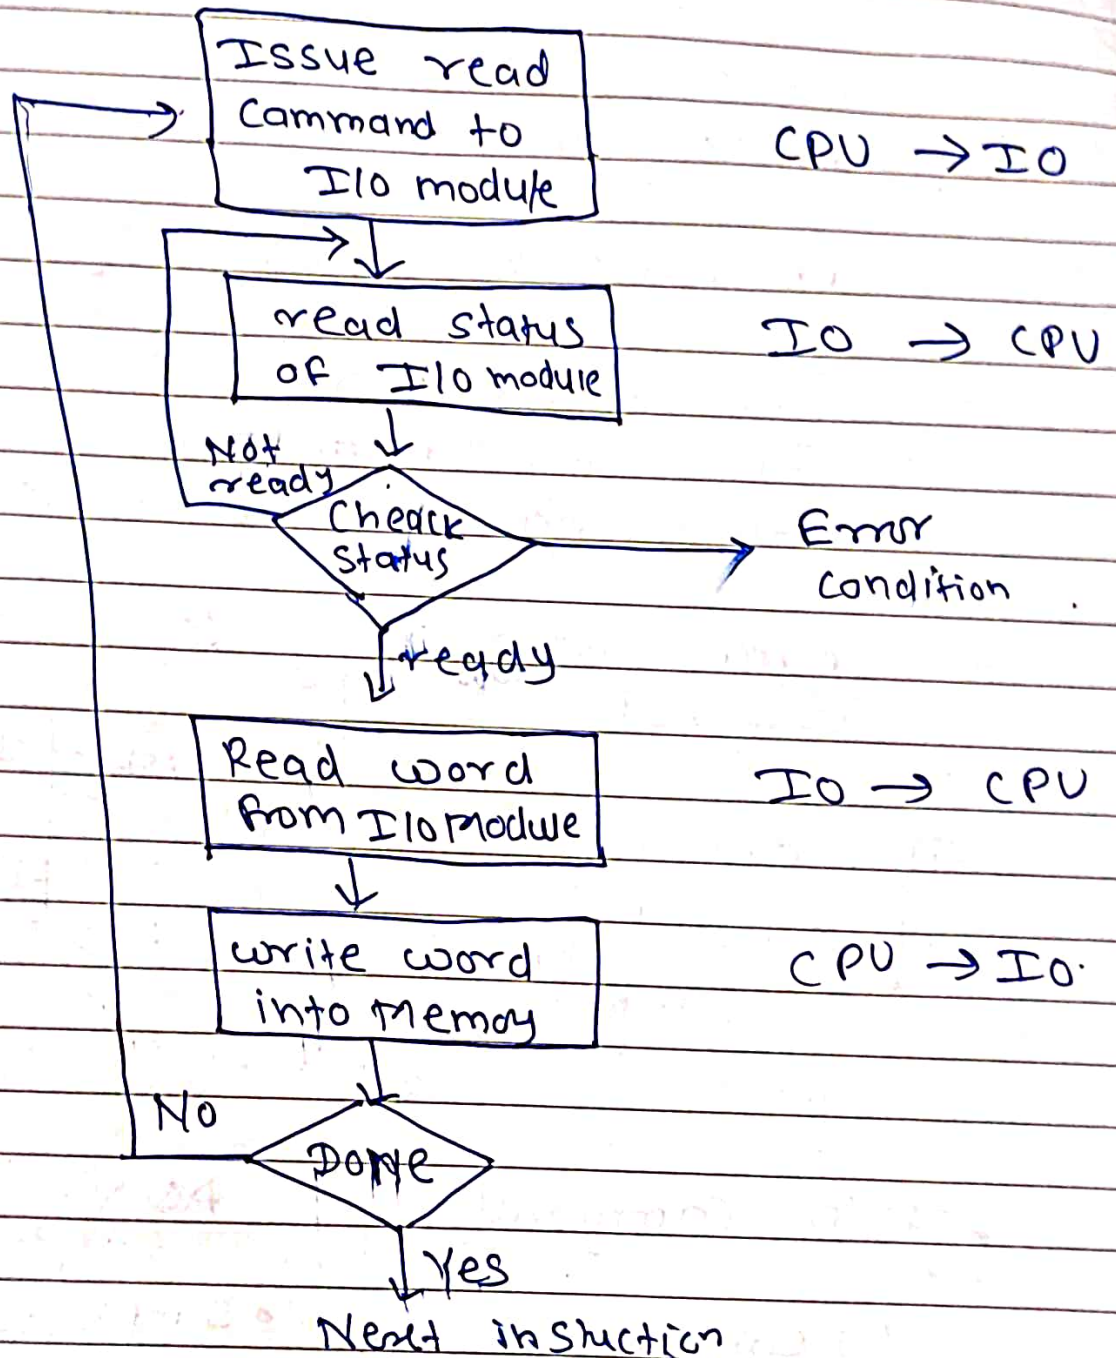 Issue read
Cammand to
I/O module
CPU → IO
read status
of I/O module
IO → CPU
Not
ready
Cheack
status
Error
condition
ready
Read word
from I/O Module
IO → CPU
write word
into Memoy
CPU → IO
No
Done
Yes
Next instuction